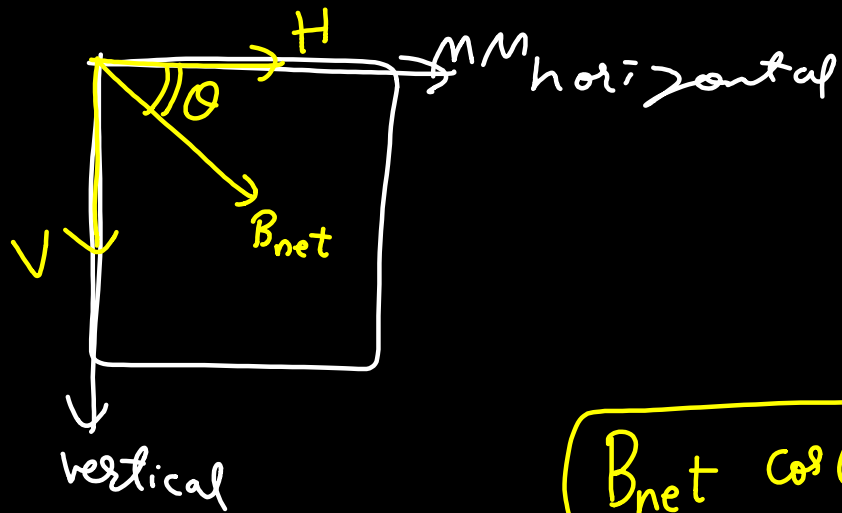 H
MM horizontal
θ
B_net
V
vertical
B_net cos